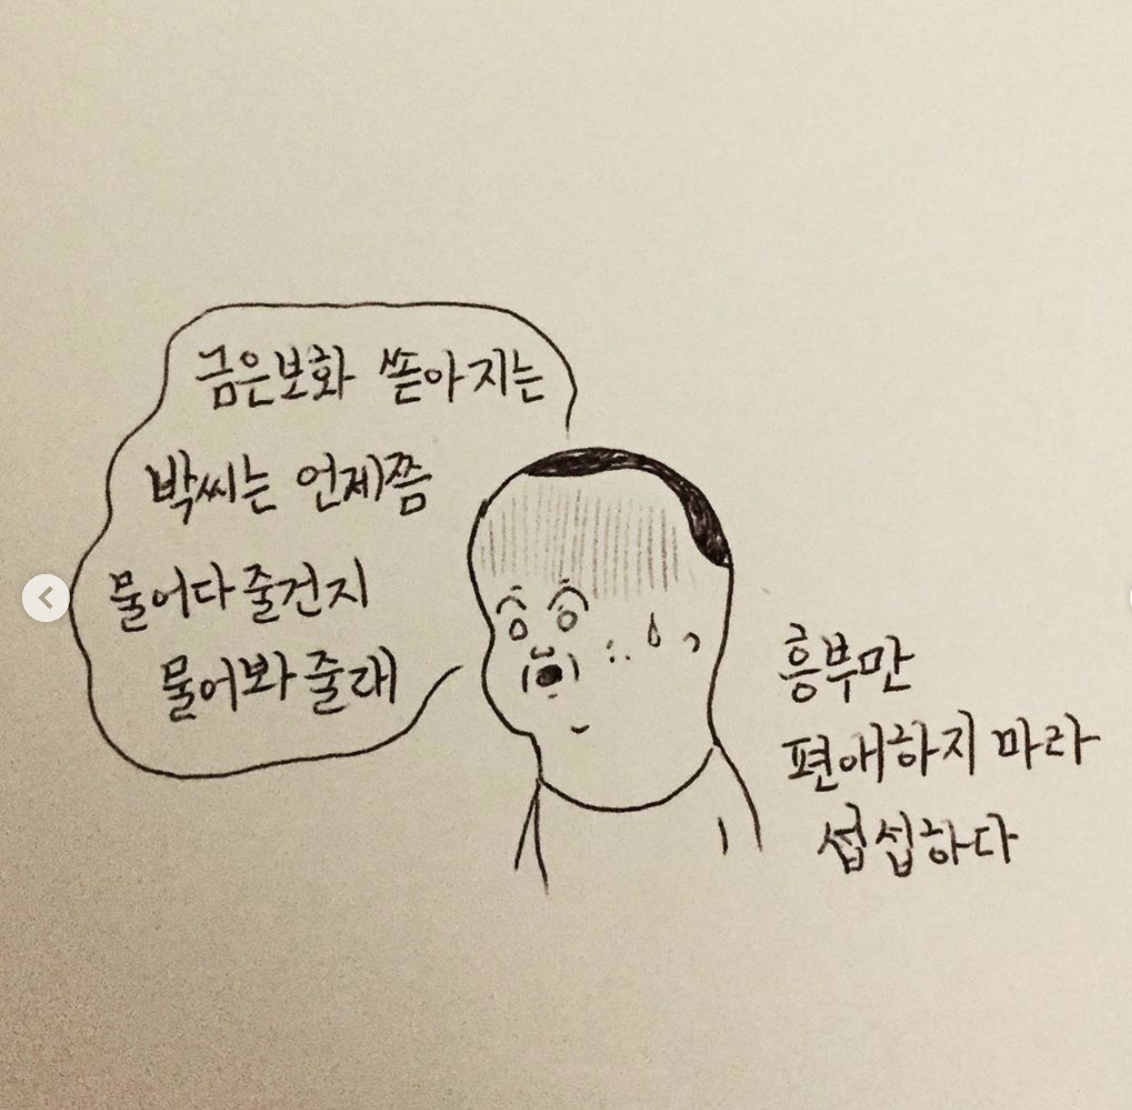 금은보화 쏟아지는
박씨는 언제쯤
물어다줄건지
물어봐줄래
흥부만
편애하지 마라
섭섭하다